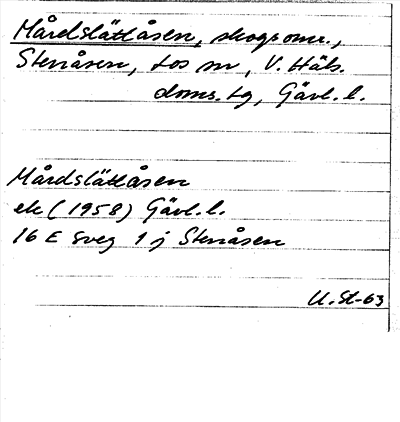 Mårdslättåsen, skogsomr.,
Stenåsen, Los sn, V. Häls.
doms. tg, Gävl. l.
Mårdslättåsen
ek (1958) Gävl. l.
16 E Sveg 1 j Stenåsen
U. St-63